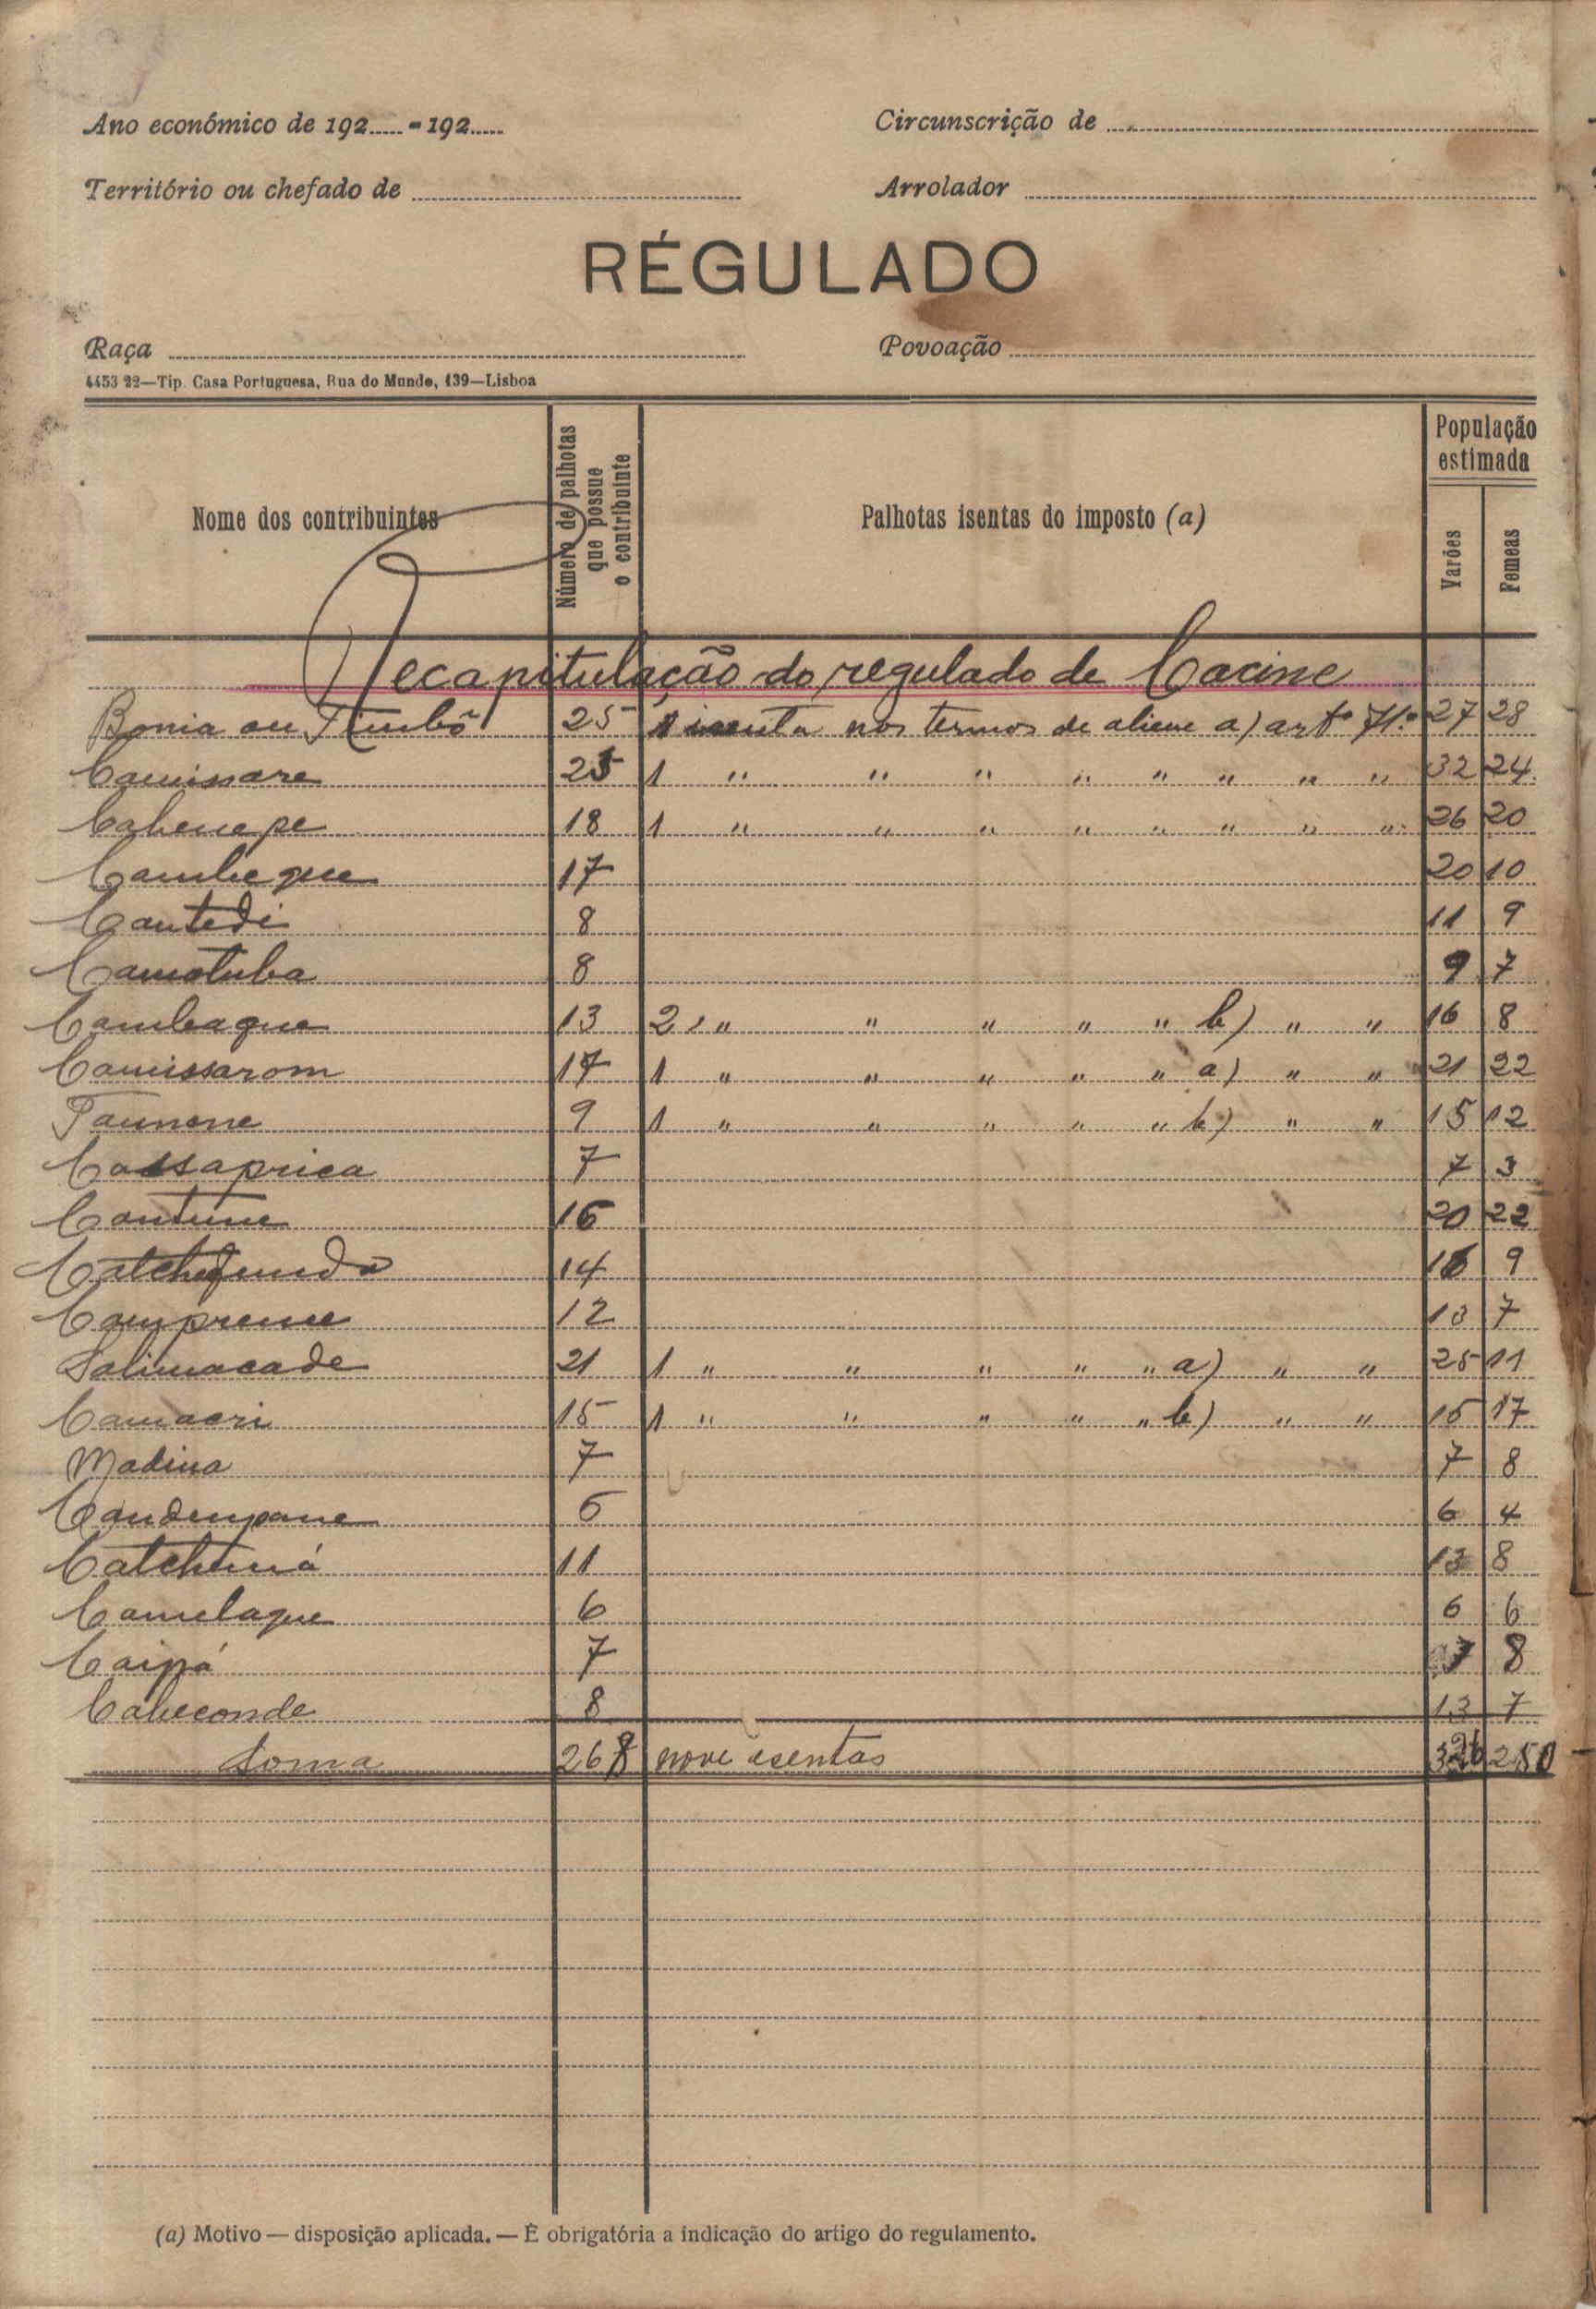 Ano económico de 192..... - 192.....
Circunscrição de
Território ou chefado de
Arrolador
RÉGULADO
Raça
Povoação
4453 22—Tip. Casa Portuguesa, Rua do Mundo, 139—Lisboa
Nome dos contribuintes
Número de palhotas que possue o contribuinte
Palhotas isentas do imposto (a)
População estimada
Varões
Femeas
Recapitulação do regulado de Cacine
Bonia ou Timbó 25 1 isenta nos termos de aliene a) artº 71.º 27 28
Camissare 25 1 " " " " " " " " 32 24
Cabenepe 18 1 " " " " " " " " 26 20
Cambeque 17 20 10
Cantedi 8 11 9
Camotuba 8 9 7
Cambaque 13 2 " " " " " b) " " 16 8
Camissarom 17 1 " " " " " a) " " 21 22
Taunene 9 1 " " " " " b) " " 15 12
Cassaprica 7 7 3
Cantune 16 20 22
14 16 9
Camprene 12 13 7
Salimacade 21 1 " " " " " a) " " 25 11
Camacri 15 1 " " " " " b) " " 15 17
Madina 7 7 8
Candenpane 5 6 4
Catchumá 11 13 8
Camelaque 6 6 6
Caipá 7 8
Cabeconde 8 13 7
Soma 268 nove isentas 326 250
(a) Motivo — disposição aplicada. — É obrigatória a indicação do artigo do regulamento.